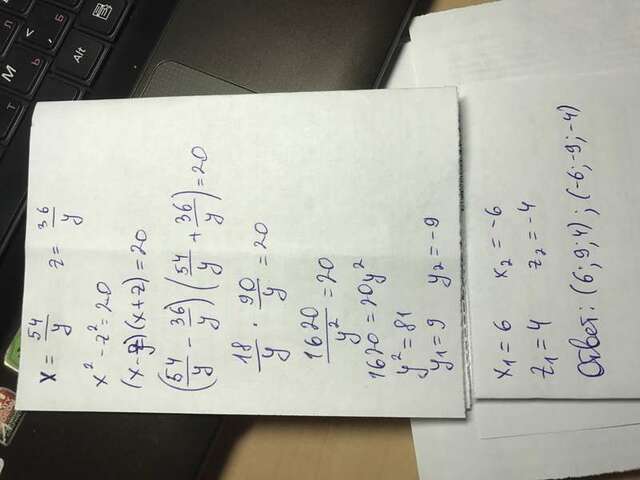 x = 54/y z = 36/y
x² - z² = 20
(x - z)(x + z) = 20
(54/y - 36/y)(54/y + 36/y) = 20
18/y · 90/y = 20
1620/y² = 20
1620 = 20y²
y² = 81
y₁ = 9 y₂ = -9
x₁ = 6 x₂ = -6
z₁ = 4 z₂ = -4
Ответ: (6; 9; 4) ; (-6; -9; -4)
Alt